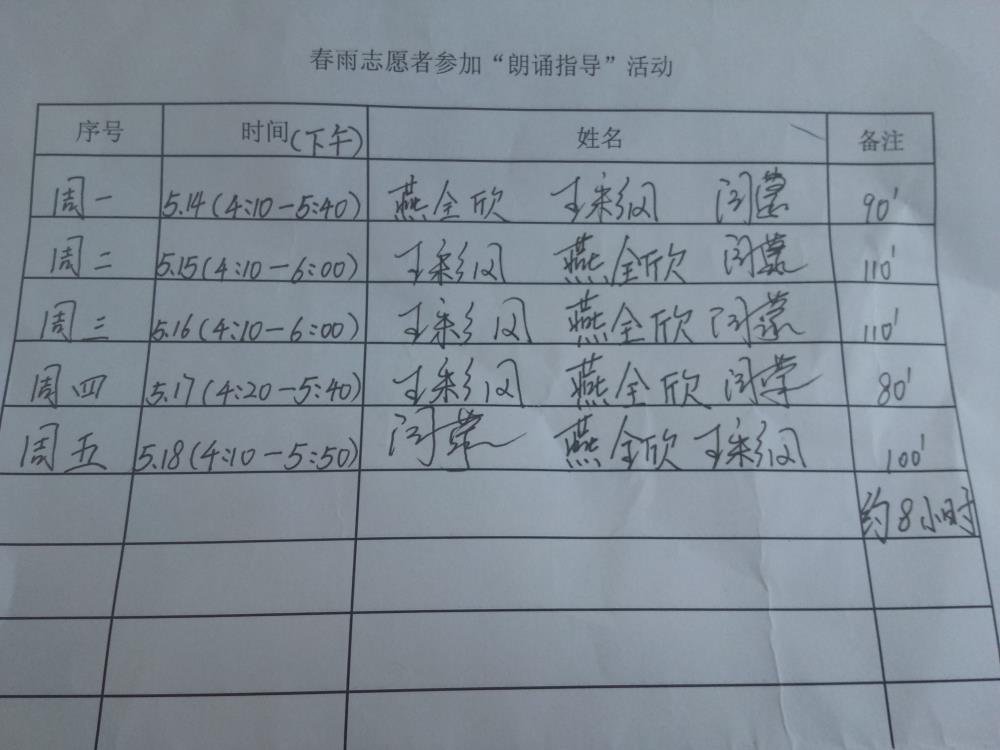 春雨志愿者参加“朗诵指导”活动
序号 时间(下午) 姓名 备注
周一 5.14(4:10-5:40) 燕全欣 王彩凤 闫 90'
周二 5.15(4:10-6:00) 王彩凤 燕全欣 闫 110'
周三 5.16(4:10-6:00) 王彩凤 燕全欣 闫 110'
周四 5.17(4:20-5:40) 王彩凤 燕全欣 闫 80'
周五 5.18(4:10-5:50) 闫 燕全欣 王彩凤 100'
约8小时